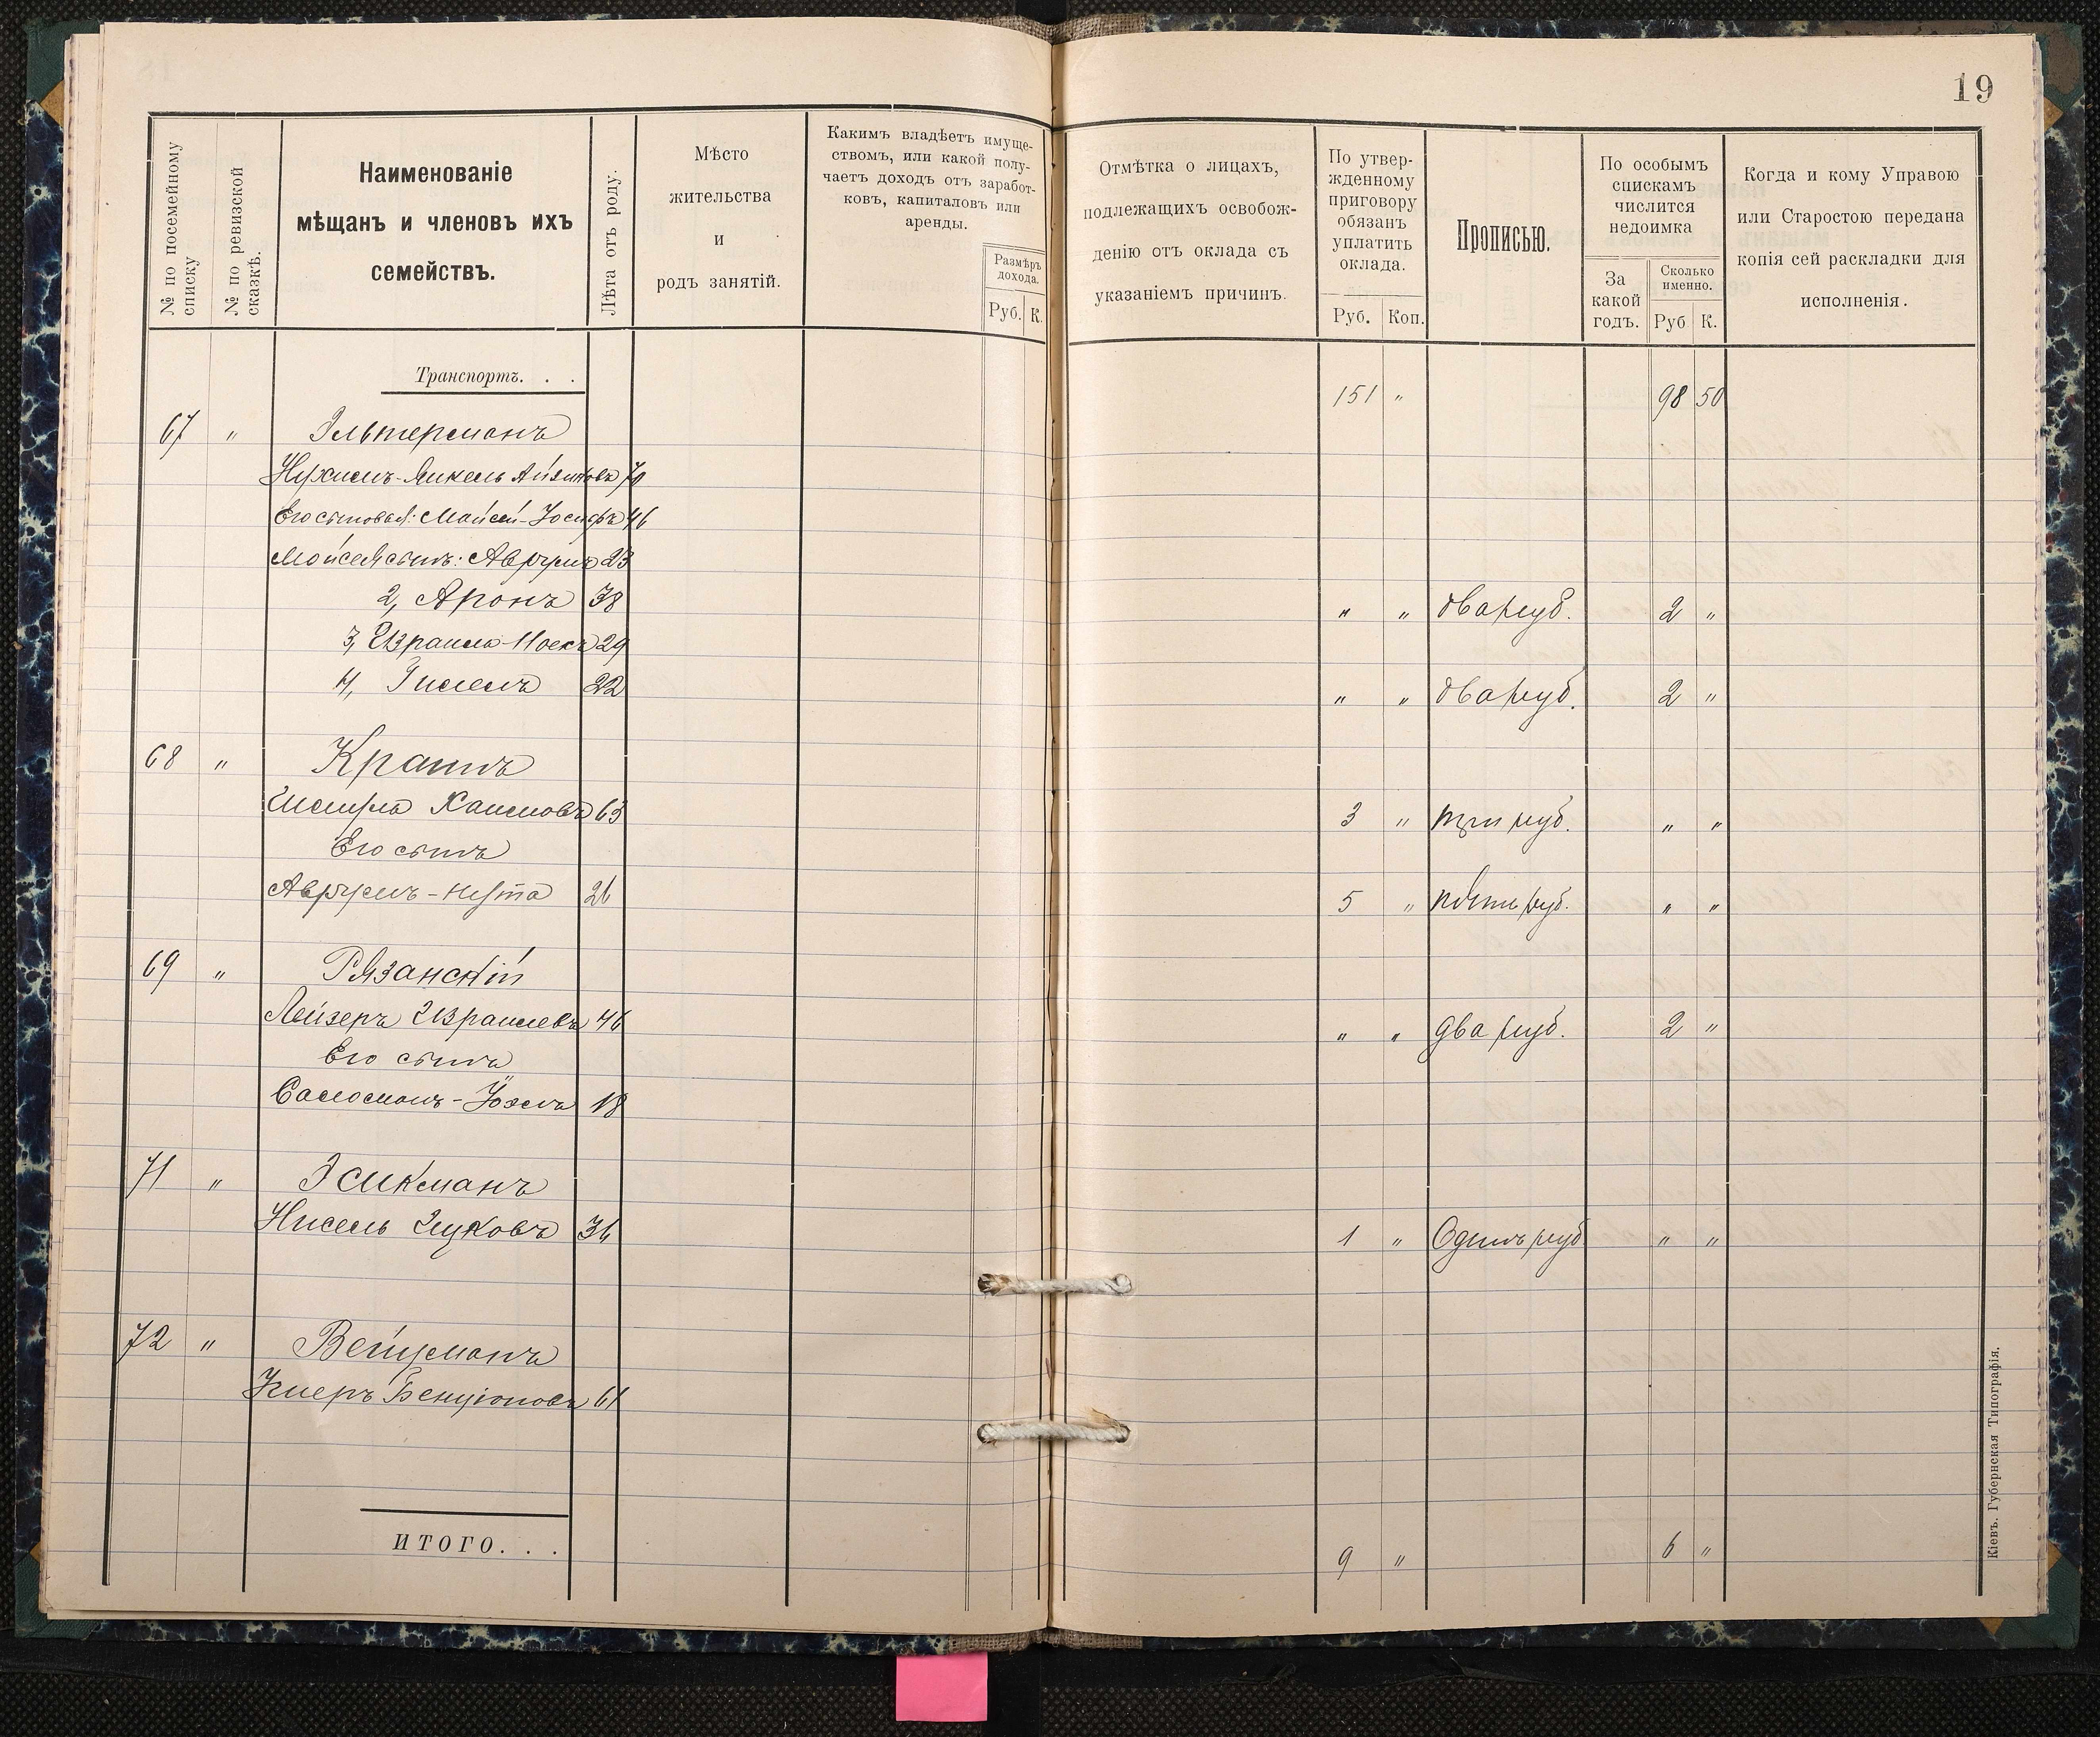 19
№ по посемейному списку
№ по ревизской сказкѣ.
Наименованіе
мѣщанъ и членовъ ихъ
семействъ.
Лѣта отъ роду.
Мѣсто
жительства
и
родъ занятій.
Какимъ владѣетъ имуще-
ствомъ, или какой полу-
чаетъ доходъ отъ заработ-
ковъ, капиталовъ или
аренды.
Размѣръ
дохода.
Руб. К.
Отмѣтка о лицахъ,
подлежащихъ освобож-
денію отъ оклада съ
указаніемъ причинъ.
По утвер-
жденному
приговору
обязанъ
уплатить
оклада.
Руб. Коп.
Прописью.
По особымъ
спискамъ
числится
недоимка
За
какой
годъ.
Сколько
именно.
Руб К.
Когда и кому Управою
или Старостою передана
копія сей раскладки для
исполненія.
Транспортъ. . . 151 " 98 50
67 " Эльтерманъ
Нухимъ-Янкель 70
Его сыновья: Мойсей-Іосифъ 46
Мойсея сынъ: Аврумъ 23
2, Аронъ 38 " " два руб. 2 "
3, Израиль 29
4, 22 " " два руб. 2 "
68 "
Шмуль Хаимовъ 63 3 " три руб. " "
Его сынъ
Аврумъ-Нута 26 5 " пять руб. " "
69 " Рязанскій
Лейзеръ Израилевъ 46 " " два руб. 2 "
Его сынъ
Соломонъ-Юэль 18
71 " Эсикманъ
Нисель Ицковъ 36 1 " Одинъ руб " "
72 " Вейцманъ
Бенціоновъ 61
ИТОГО. . . 9 " 6 "
Кіевъ. Губернская Типографія.